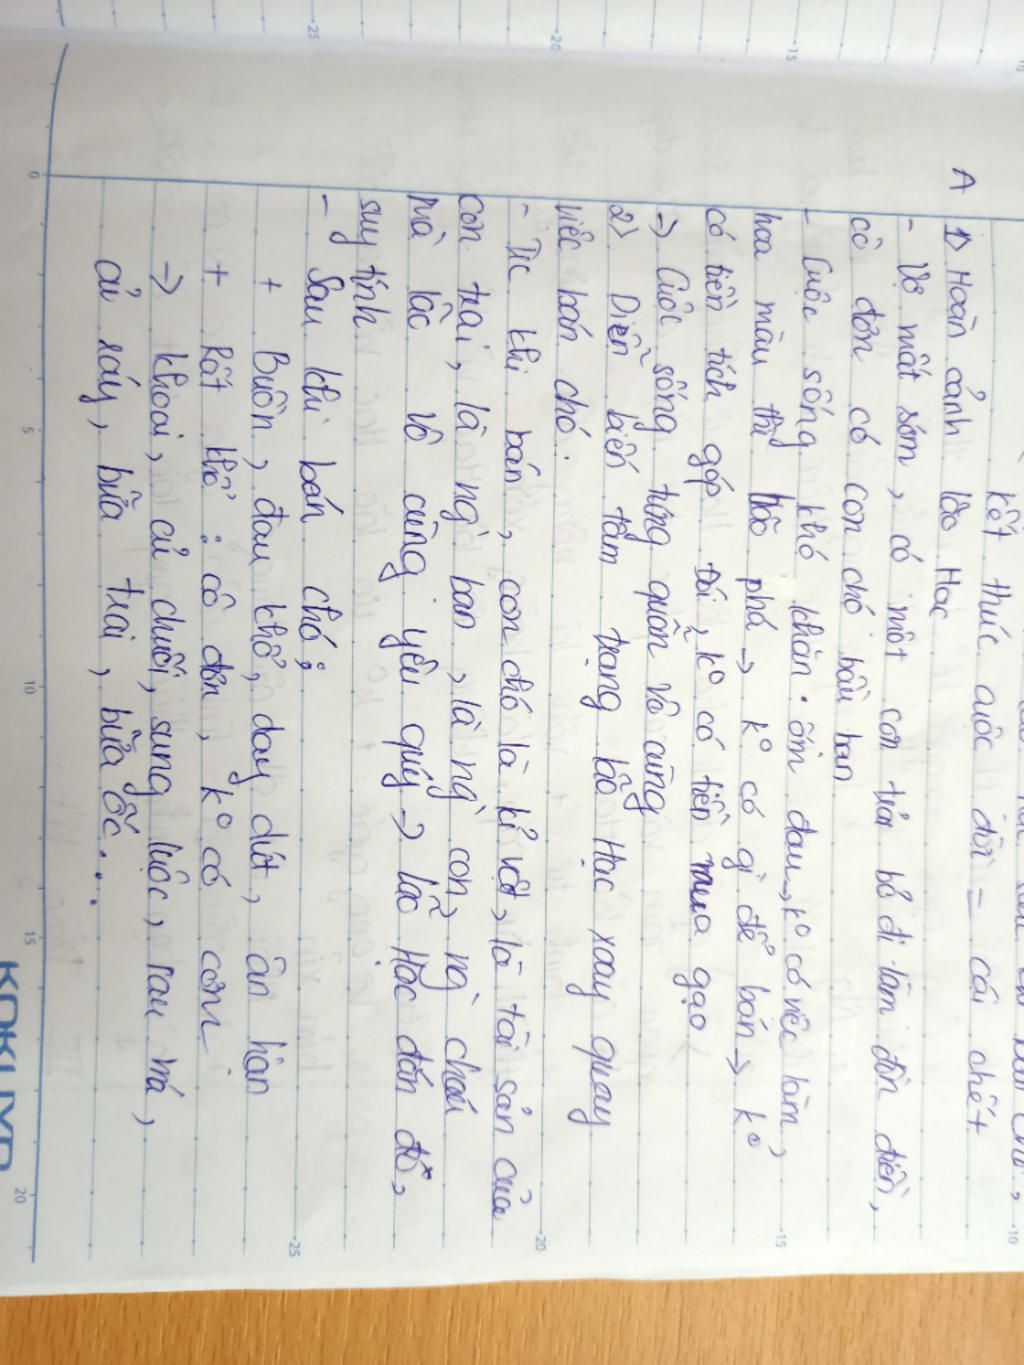 kết thúc cuộc đời = cái chết
A 1) Hoàn cảnh lão Hạc
- Vợ mất sớm, có một con trai bỏ đi làm đồn điền,
cô đơn có con chó bầu bạn
- Cuộc sống khó khăn. ốm đau, k° có việc làm,
hoa màu thì bão phá → k° có gì để bán → k°
có tiền tích góp đói, k° có tiền mua gạo
→ Cuộc sống túng quẫn vô cùng
2) Diễn biến tâm trạng lão Hạc xoay quay
việc bán chó:
- Tc khi bán, con chó là kỉ vật, là tài sản của
con trai, là ng` bạn, là ng` con, ng` cháu
mà lão vô cùng yêu quý → lão Hạc đắn đo,
suy tính
- Sau khi bán chó:
+ Buồn, đau khổ, day dứt, ân hận
+ Rất khổ: cô đơn, k° có cơm
→ khoai, củ chuối, sung luộc, rau má,
củ ráy, bữa trai, bữa ốc...
KOKUYO
0
5
10
15
20
-25
-20
-15
-10
-25
-20
-15